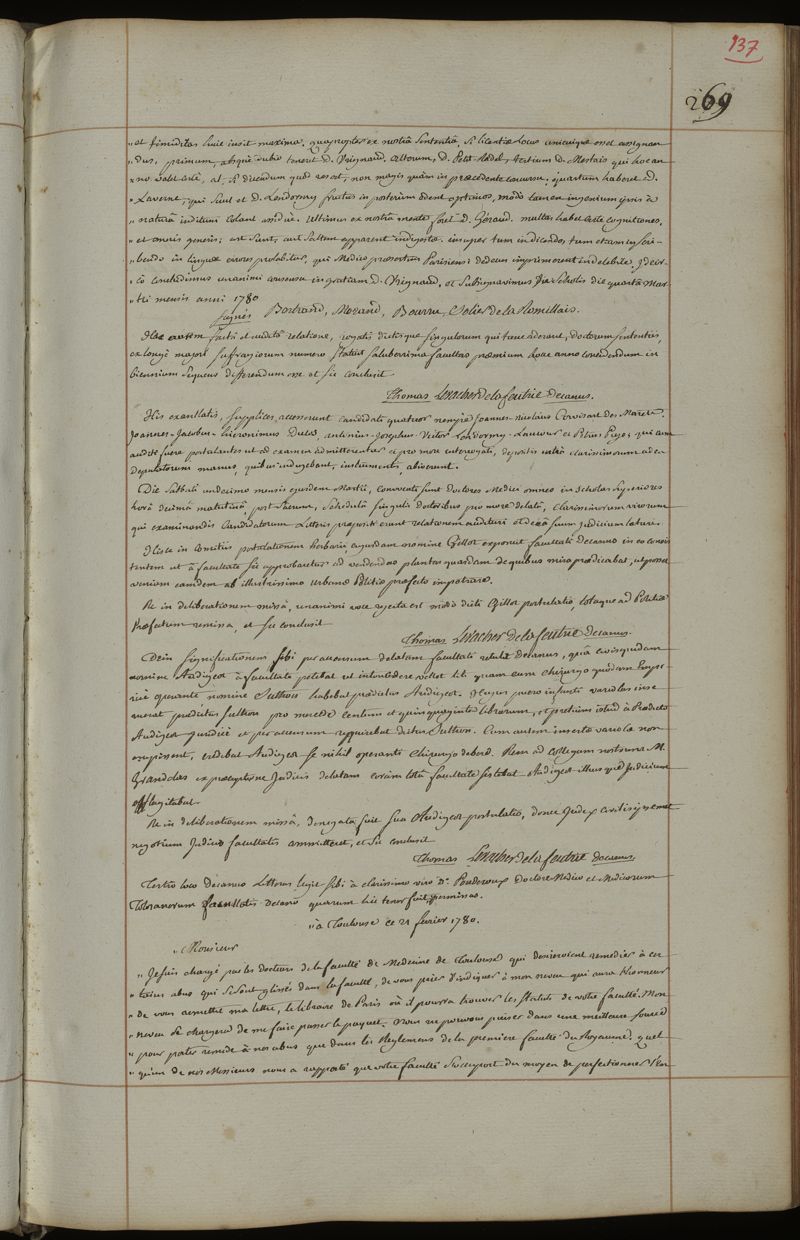 137
269
"et timiditas huic insit maxima. quapropter ex nostrâ sententiâ, si licentiæ locus unicuique esset assignan
"dus, primum, absque dubio teneret D. Vrignaud. alterum, D. Petit-Radel, tertium D. qui hoc an
"no velit at, si dicendum quod res est, non magis quàm in præcedente concursu. quartum haberet D.
"Laverne, qui sicut et D. Londormy fructus in posterum edent optimos, modò tamen ingenium ipsis à
"naturâ inditum colant assiduè. ultimus ex nostrâ mente foret D. Géraud. multas habet cognitiones,
"et omnis generis; aut sunt, aut saltem apparent indigestæ. insuper tum in dicendo, tum etiam in scri-
"bendo in linguæ errores prolabitur, qui Medico præsertim Parisiensi dedecus imprimerent indelebile. Idcir-
"co concludimus unanimi consensu in gratiam D. Vrignaud, et subsignavimus in scholis die quartâ Mar-
"tii mensis anni 1780
signés Bertrand, Morand, Bourru, Solier de la Romillais.
Hâc autem factâ et auditâ relatione, rogatis dictisque singulorum qui tunc aderant, doctorum sententiis,
ex longè majori suffragiorum numero statuit saluberrima facultas præmium hocce anno concedendum in
biennium sequens differendum esse et sic conclusit
Thomas Levacher de la feutrie decanus.
His exantlatis, supplices accesserunt candidati quatuor nempè Joannes-Nicolaus Corvisart des Marets,
Joannes-Jacobus-hieronimus antonius-Josephus-Victor Londormy-Laucour et Petrus qui cum
auditi fuere postulantes ut ad examen admitterentur et pro more interrogati, depositis intrà clarissimorum ad id
deputatorum manus, quibus indigebant, instrumentis, abierunt.
Die sabbati undecimo mensis ejusdem Martii, convocati sunt doctores Medici omnes in scholas superiores
horâ decimâ matutinâ, post sacrum, schedulâ singulis doctoribus pro more delatâ, clarissimorum virorum
qui examinandis candidatorum litteris præpositi erant relationem audituri et de eâ suum judicium laturi.
Hisce in Comitiis postulationem herbarii cujusdam nomine Gillot exposuit facultati decanus in eo consis
tentem ut à facultate sic approbaretur ad vendendas plantas quasdam de quibus mira prædicabat, ut posset
veniam eamdem ab illustrissimo urbanæ Politiæ præfecto impetrare.
Re in deliberationem missâ, unanimi voce rejecta est modò dicti Gillot postulatio totaque ad Politiæ
Præfectum remissa, et sic conclusit
Thomas Levacher de la feutrie decanus.
Dein significationem sibi per accensum delatam facultati retulit decanus, quâ civis quidam
nomine Audiger à facultate petebat ut intercedere vellet liti quam cum chirurgo quodam Empi-
ricè operante nomine Sutton habebat prædictus Audiger. Hujus puero infanti variolas inse
ruerat prædictus Sutton pro mercede centum et quinquaginta librarum, et pretium istud à Prædicto
Audiger juridicè et per accensum requirebat dictus Sutton. Cum autem insertæ variolæ non
erupissent, credebat Audiger se nihil operanti chirurgo debere. Rem ad collegam nostrum M.
Grandclas ex præceptione Judicis delatam coràm totâ facultate sistebat Audiger illiusque Judicium
efflagitabat.
Re in deliberationem missâ, denegata fuit sua Audiger postulatio, donec Judex civilis ipsemet
negotium Judicio facultatis committeret, et sic conclusit
Thomas Levacher de la feutrie decanus
Tertio loco decanus litteras legit sibi à clarissimo viro Dno. Pouderoux Doctore Medico et Medicorum
Tolosanorum facultatis decano quarum hic tenor fuit
"à Toulouse ce 21 fevrier 1780.
"Monsieur
"Je suis chargé par les docteurs de la faculté de Medecine de Toulouse qui desireroient remedier à cer
"tains abus qui se sont glissés dans la faculté, de vous prier d'indiquer à mon neveu qui aura l'honneur
"de vous remettre ma lettre, le libraire de Paris où il pourra trouver les statuts de votre faculté. Mon
"neveu se chargera de me faire passer le paquet. Nous ne pouvons puiser dans une meilleure source
"pour porter remede à nos abus que dans les Reglemens de la premiere faculté du Royaume. quel
"qu'un de nos Messieurs nous a rapporté que votre faculté s'occupoit du moyen de perfectionner l'en